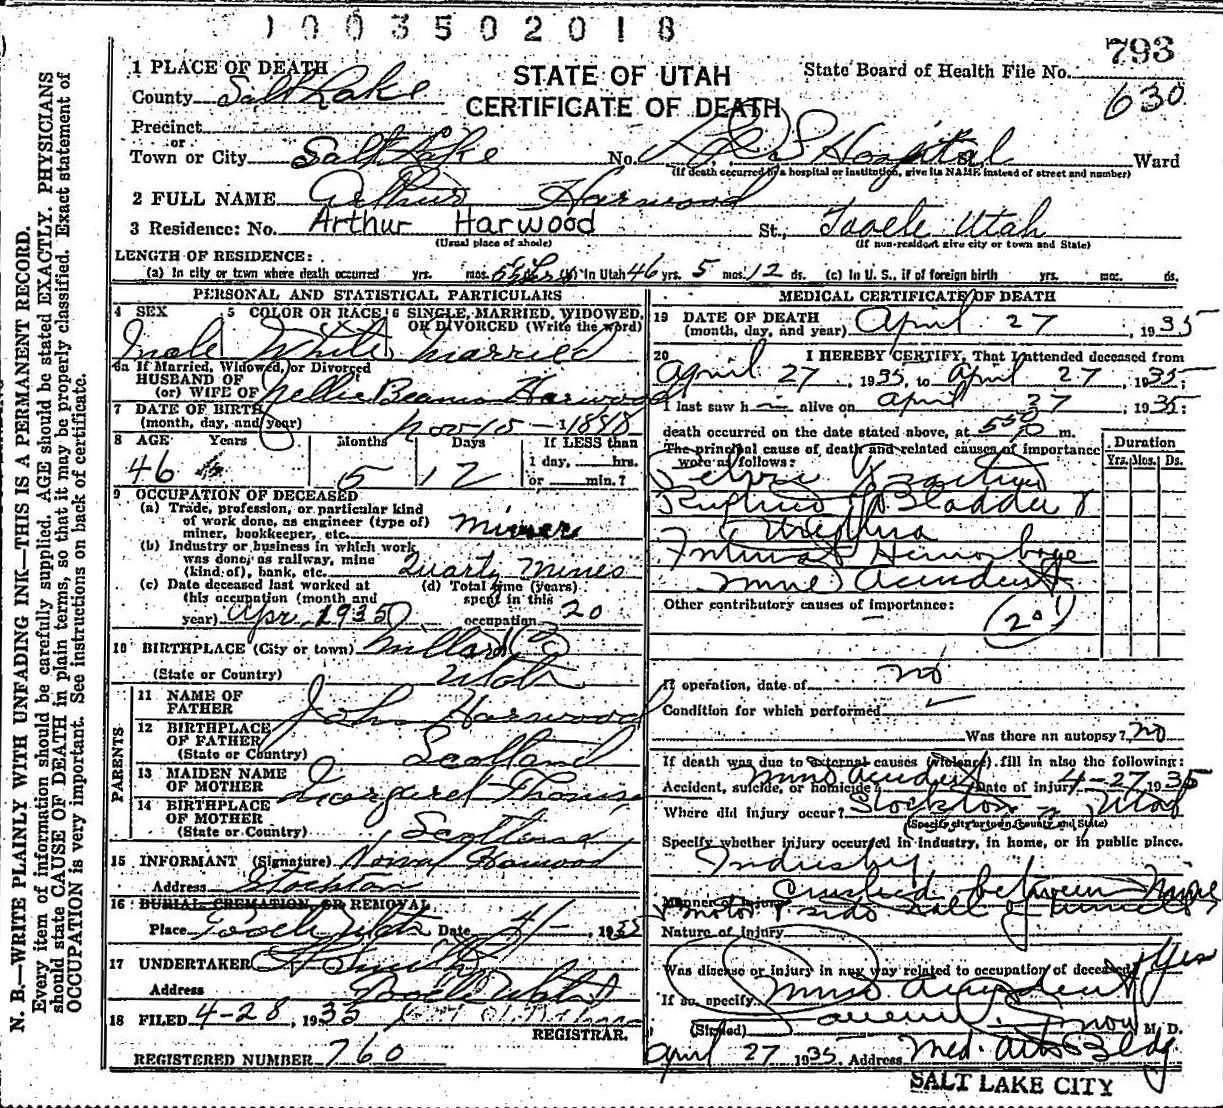 1003502018
793
1 PLACE OF DEATH
STATE OF UTAH
State Board of Health File No.
630
County Salt Lake
CERTIFICATE OF DEATH
Precinct
or
Town or City Salt Lake No. L.D.S. Hospital St. Ward
(If death occurred in a hospital or institution, give its NAME instead of street and number)
2 FULL NAME Arthur Harwood
3 Residence: No. Arthur Harwood St., Tooele Utah
(Usual place of abode) (If non-resident give city or town and State)
LENGTH OF RESIDENCE:
(a) In city or town where death occurred yrs. mos. (b) In Utah 46 yrs. 5 mos. 12 ds. (c) In U. S., if of foreign birth yrs. mos. ds.
PERSONAL AND STATISTICAL PARTICULARS
4 SEX 5 COLOR OR RACE 6 SINGLE, MARRIED, WIDOWED, OR DIVORCED (Write the word)
Male White Married
5a If Married, Widowed, or Divorced
HUSBAND OF
(or) WIFE OF Nellie Beams Harwood
7 DATE OF BIRTH
(month, day, and year) Nov 15 - 1888
8 AGE Years Months Days If LESS than
46 5 12 1 day, hrs.
or min.?
9 OCCUPATION OF DECEASED
(a) Trade, profession, or particular kind
of work done, as engineer (type of)
miner, bookkeeper, etc. Miner
(b) Industry or business in which work
was done, as railway, mine
(kind of), bank, etc. Quartz Mines
(c) Date deceased last worked at (d) Total time (years)
this occupation (month and spent in this
year) Apr. 1935 occupation 20
10 BIRTHPLACE (City or town) Millard Co
(State or Country) Utah
PARENTS
11 NAME OF
FATHER John Harwood
12 BIRTHPLACE
OF FATHER
(State or Country) Scotland
13 MAIDEN NAME
OF MOTHER Margaret
14 BIRTHPLACE
OF MOTHER
(State or Country) Scotland
15 INFORMANT (Signature) Harwood
Address Stockton
16 BURIAL CREMATION, OR REMOVAL
Place Tooele Utah Date 4/-, 1935
17 UNDERTAKER
Address Tooele Utah
18 FILED 4-28, 1935
REGISTRAR.
REGISTERED NUMBER 760
MEDICAL CERTIFICATE OF DEATH
19 DATE OF DEATH
(month, day, and year) April 27, 1935
20 I HEREBY CERTIFY, That I attended deceased from
April 27, 1935, to April 27, 1935;
I last saw h alive on April 27, 1935;
death occurred on the date stated above, at 5:50 P m.
The principal cause of death and related causes of importance
were as follows:
Duration
Yrs. Mos. Ds.
Pelvic Fracture
Ruptured Bladder &
Urethra
Internal Hemorrhage
Mine Accident
Other contributory causes of importance:
201
If operation, date of no
Condition for which performed
Was there an autopsy? no
If death was due to external causes (violence) fill in also the following:
Accident, suicide, or homicide? Mine Accident Date of injury 4-27 1935
Where did injury occur? Stockton Utah
(Specify city or town, county and State)
Specify whether injury occurred in industry, in home, or in public place.
Industry
Manner of injury Crushed between Mine
motor & side wall of tunnel
Nature of injury
Was disease or injury in any way related to occupation of deceased? Yes
If so, specify Mine Accident
(Signed) Snow M. D.
April 27 1935 Address Med. Arts Bldg
SALT LAKE CITY
N. B.—WRITE PLAINLY WITH UNFADING INK—THIS IS A PERMANENT RECORD.
Every item of information should be carefully supplied. AGE should be stated EXACTLY. PHYSICIANS
should state CAUSE OF DEATH in plain terms, so that it may be properly classified. Exact statement of
OCCUPATION is very important. See instructions on back of certificate.